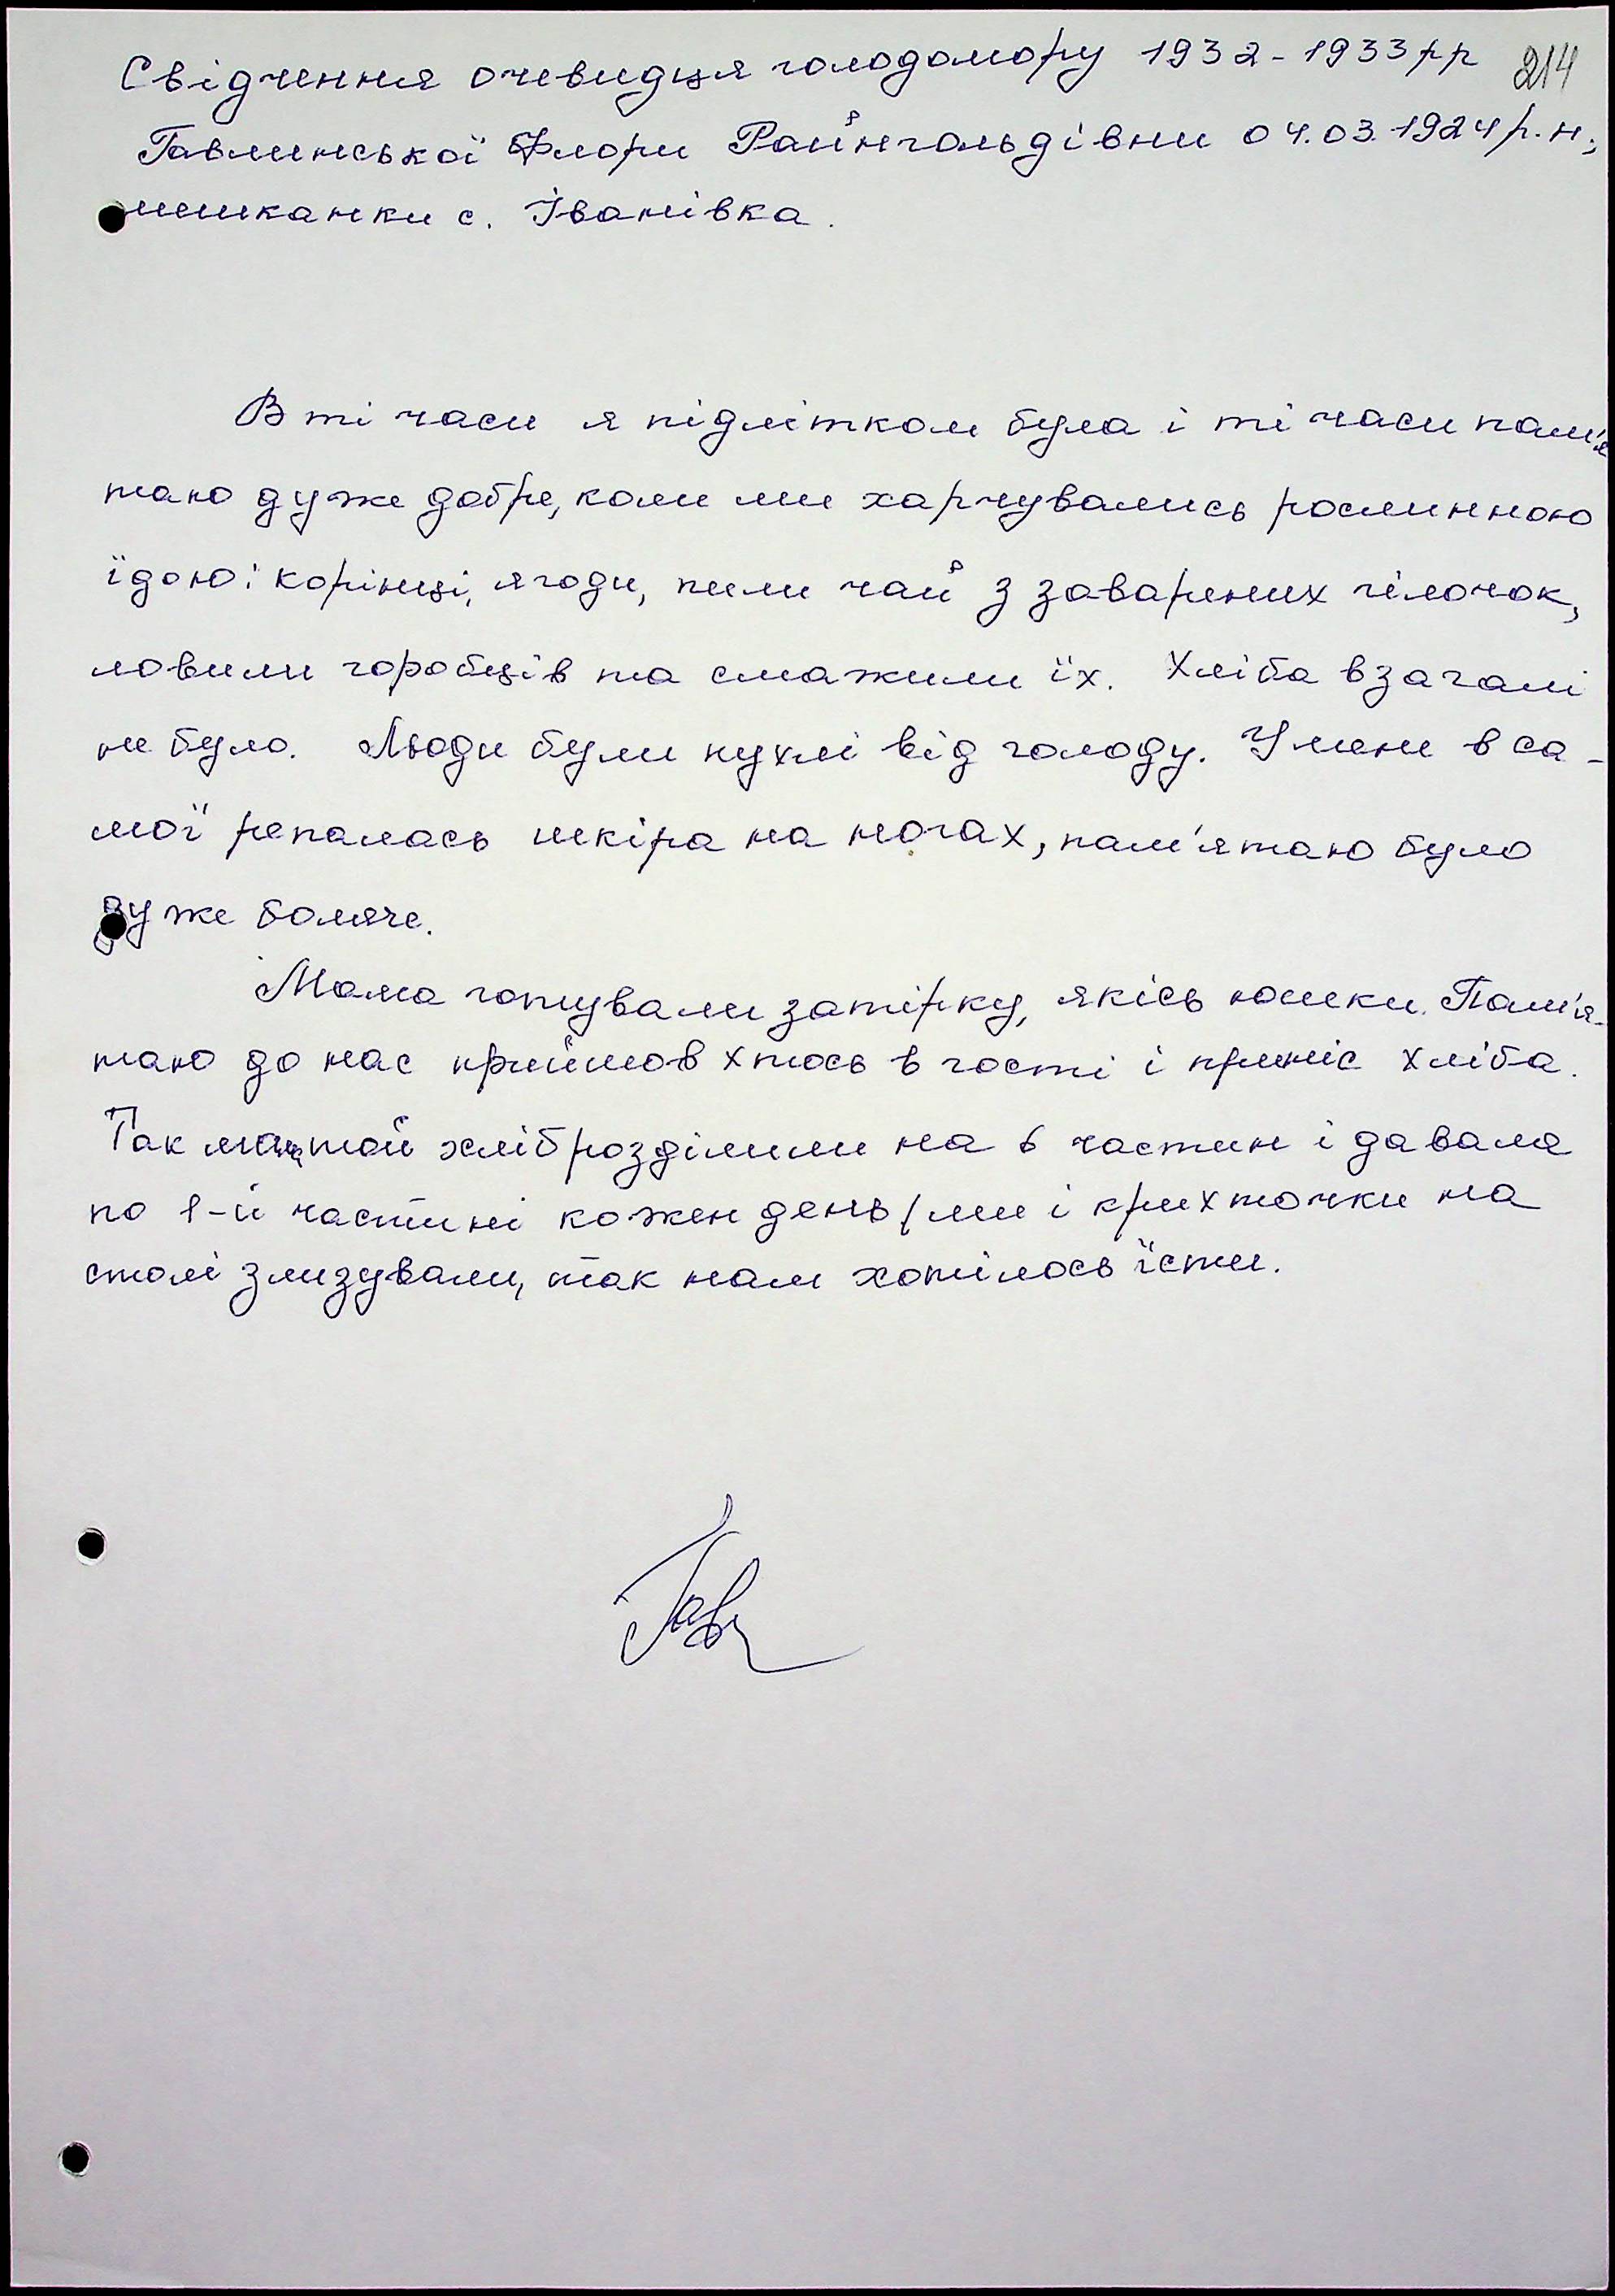 Свідчення очевидця голодомору 1932-1933рр 214
Гавлинської Флори Райнгольдівни 04.03.1924р.н;
мешканки с. Іванівка.
В ті часи я підлітком була і ті часи пам'я
таю дуже добре, коли ми харчувались рослинною
їдою: корінці, ягоди, пили чай з заварених гілочок,
ловили горобців та смажили їх. Хліба взагалі
не було. Люди були пухлі від голоду. У мене в са-
мої репалась шкіра на ногах, пам'ятаю було
дуже боляче.
Мама готували затірку, якісь юшки. Пам'я-
таю до нас прийшов хтось в гості і приніс хліба.
Так той хліб розділили на 6 частин і давала
по 1-й частині кожен день, ми і крихточки на
столі злизували, так нам хотілось їсти.
Гав